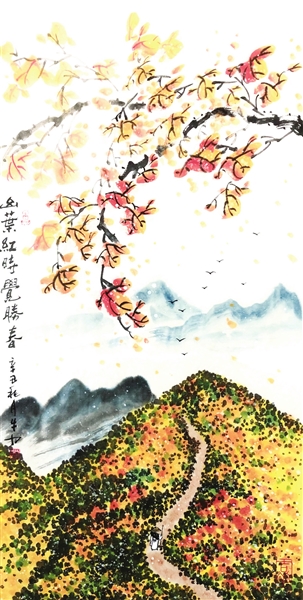 山葉紅時覺勝春
辛丑秋月